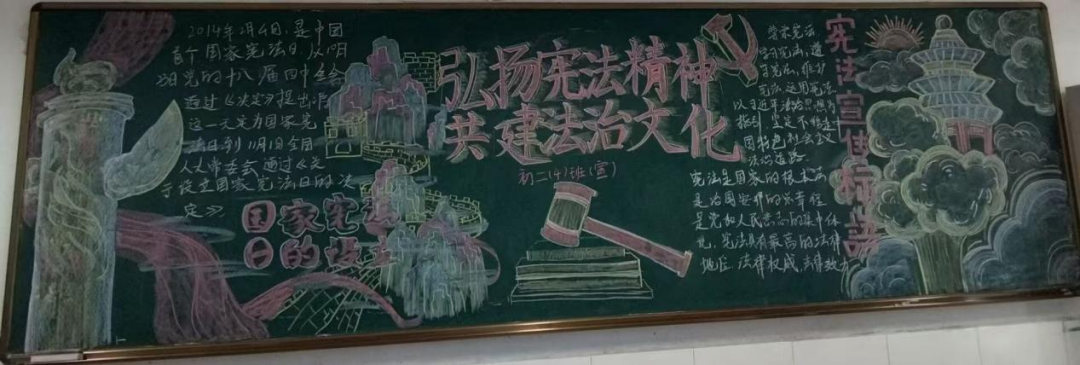 2014年12月4日,是中国
首个国家宪法日,从10月
党的十八届四中全会
通过《决定》提出将
这一天定为国家宪
法日到11月1日全国
人大常委会通过《关
于设立国家宪法日的决
定》。
国家宪法
日的设立
弘扬宪法精神
共建法治文化
初二(4)班(宣)
宪法宣传标语
学习宪法,遵
守宪法,维护
宪法,运用宪法
以习近平法治思想为
指引 坚定不移走中
国特色社会主义
法治道路
宪法是国家的根本法
是治国安邦的总章程
是党和人民意志的集中体
现,宪法具有最高的法律
地位 法律权威 法律效力